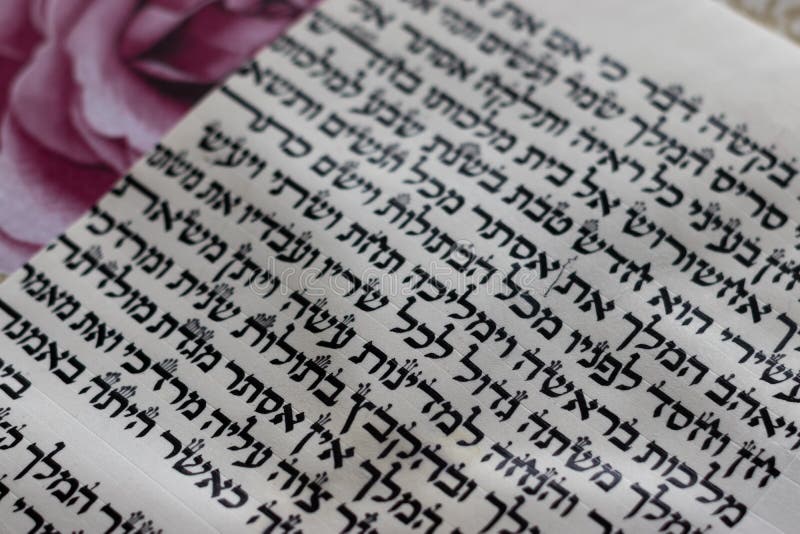 בקשה דבר כי אם את
סריס המלך שמר הנשים ותהי
חן בעיני כל ראיה ותלקח אסתר אל
אחשורוש אל בית מלכותו בחדש
העשירי הוא חדש טבת בשנת שבע למלכותו
ויאהב המלך את אסתר מכל הנשים ותשא
חן וחסד לפניו מכל הבתולות וישם כתר
מלכות בראשה וימליכה תחת ושתי ויעש
המלך משתה גדול לכל שריו ועבדיו את משתה
והנחה למדינות עשה ויתן משאת
ובהקבץ בתולות שנית ומרדכי
המלך אין אסתר מגדת מולדתה
צוה עליה מרדכי ואת מאמר
כאשר היתה באמנה
המלך